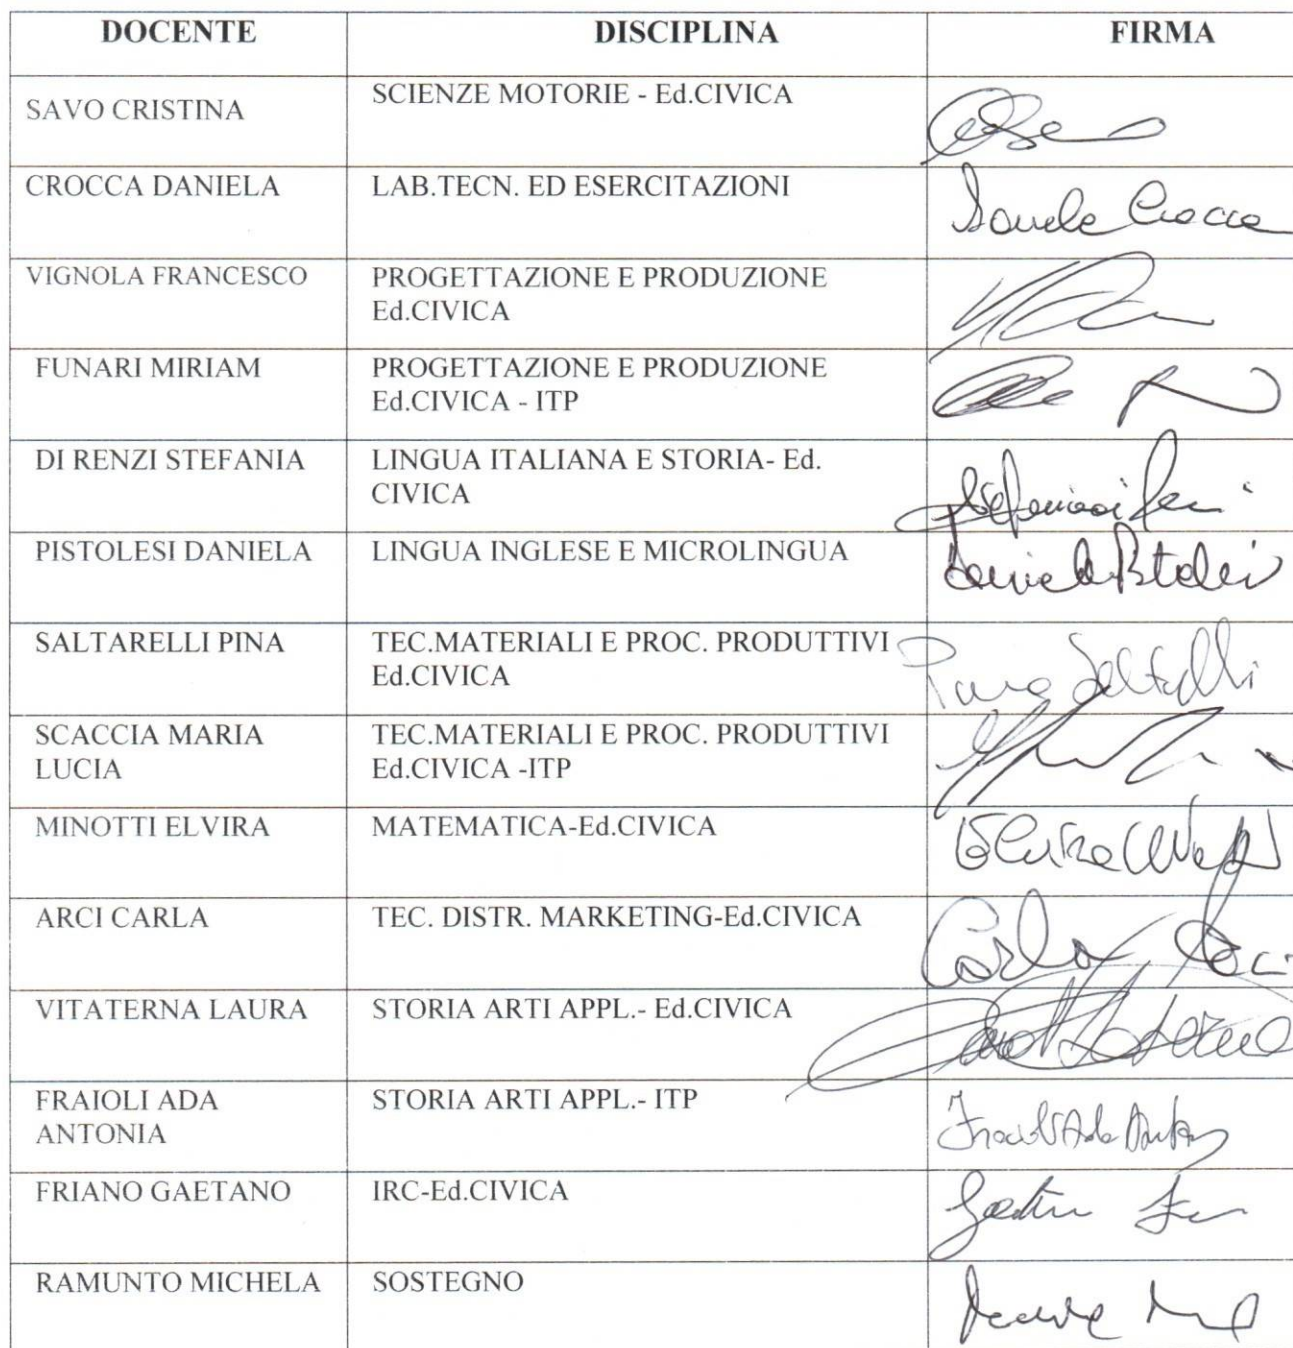 DOCENTE DISCIPLINA FIRMA
SAVO CRISTINA SCIENZE MOTORIE - Ed.CIVICA
CROCCA DANIELA LAB.TECN. ED ESERCITAZIONI Daniela Crocca
VIGNOLA FRANCESCO PROGETTAZIONE E PRODUZIONE
Ed.CIVICA
FUNARI MIRIAM PROGETTAZIONE E PRODUZIONE
Ed.CIVICA - ITP
DI RENZI STEFANIA LINGUA ITALIANA E STORIA- Ed.
CIVICA
PISTOLESI DANIELA LINGUA INGLESE E MICROLINGUA
SALTARELLI PINA TEC.MATERIALI E PROC. PRODUTTIVI
Ed.CIVICA Pina Saltarelli
SCACCIA MARIA TEC.MATERIALI E PROC. PRODUTTIVI
LUCIA Ed.CIVICA -ITP
MINOTTI ELVIRA MATEMATICA-Ed.CIVICA
ARCI CARLA TEC. DISTR. MARKETING-Ed.CIVICA Carla Arci
VITATERNA LAURA STORIA ARTI APPL.- Ed.CIVICA
FRAIOLI ADA STORIA ARTI APPL.- ITP
ANTONIA
FRIANO GAETANO IRC-Ed.CIVICA
RAMUNTO MICHELA SOSTEGNO